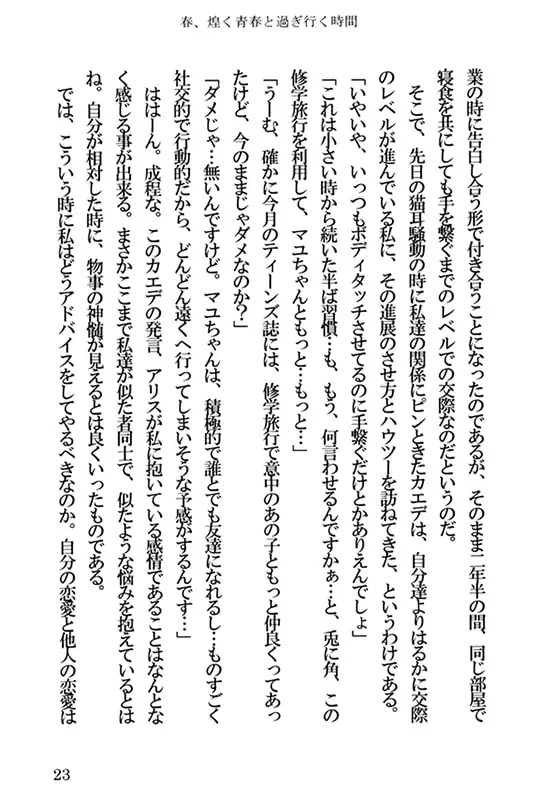 春、煌く青春と過ぎ行く時間
業の時に告白し合う形で付き合うことになったのであるが、そのまま二年半の間、同じ部屋で
寝食を共にしても手を繋ぐまでのレベルでの交際なのだというのだ。
そこで、先日の猫耳騒動の時に私達の関係にピンときたカエデは、自分達よりはるかに交際
のレベルが進んでいる私に、その進展のさせ方とハウツーを訪ねてきた、というわけである。
「いやいや、いっつもボディタッチさせてるのに手繋ぐだけとかありえんでしょ」
「これは小さい時から続いた半ば習慣…も、もう、何言わせるんですかぁ…と、兎に角、この
修学旅行を利用して、マユちゃんともっと…もっと…」
「うーむ、確かに今月のティーンズ誌には、修学旅行で意中のあの子ともっと仲良くってあっ
たけど、今のままじゃダメなのか？」
「ダメじゃ…無いんですけど。マユちゃんは、積極的で誰とでも友達になれるし…ものすごく
社交的で行動的だから、どんどん遠くへ行ってしまいそうな予感がするんです…」
ははーん。成程な。このカエデの発言、アリスが私に抱いている感情であることはなんとな
く感じる事が出来る。まさかここまで私達が似た者同士で、似たような悩みを抱えているとは
ね。自分が相対した時に、物事の神髄が見えるとは良くいったものである。
では、こういう時に私はどうアドバイスをしてやるべきなのか。自分の恋愛と他人の恋愛は
23